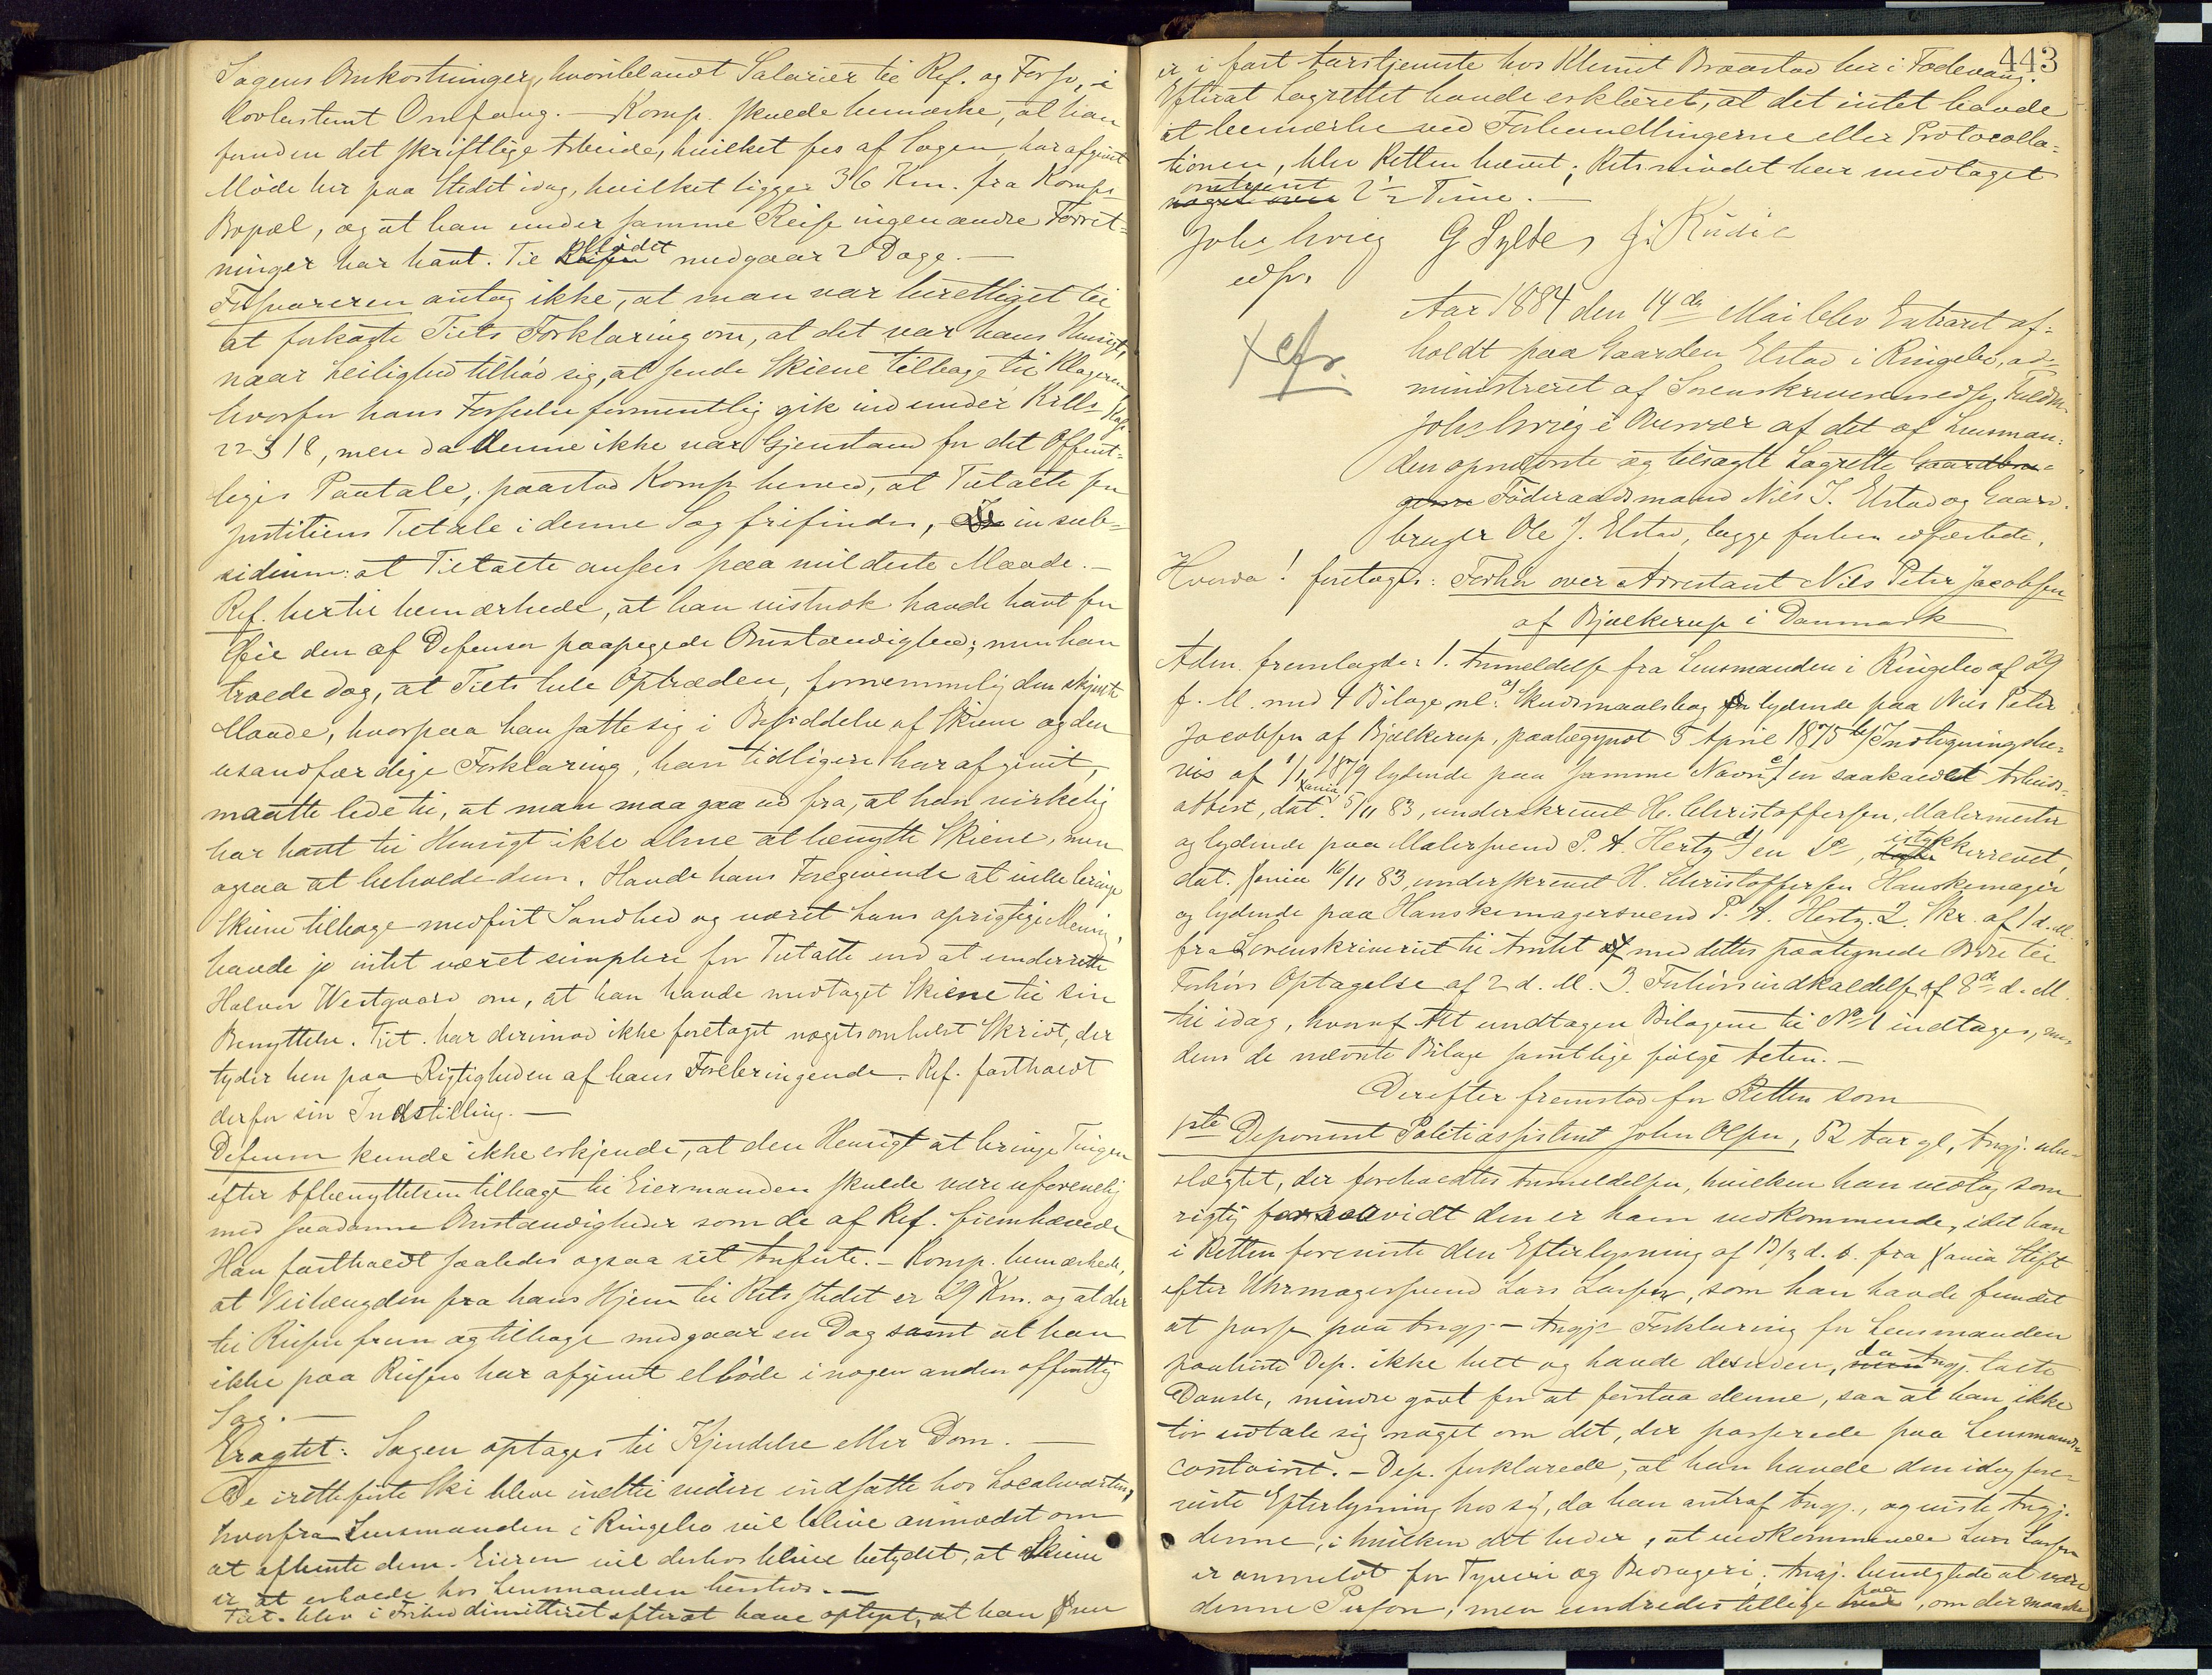 Sagens Omkostninger, hvoriblandt Salarier til Ref. og Forsv., i
lovbestemt Omfang. – Komp. skulde bemærke, at han
foruden det skriftlige Arbeide, hvilket sees af Sagen, har afgivet
Møde her paa Stedet idag, hvilket ligger 36 Km. fra Komps
Bopæl, og at han under samme Reise ingen andre Forret-
ninger har havt. Til Mødet medgaar 2 Dage. –
Forsvareren antog ikke, at man var berettiget til
at forkaste Tilts Forklaring om, at det var hans Hensigt,
naar Leilighed tilbød sig, at sende Skiene tilbage til Klageren
hvorfor hans Forseelse formentlig gik ind under Krll. Kap.
22 § 18, men da denne ikke var Gjenstand for det Offent-
liges Paatale, paastod Komp. herved, at Tiltalte for
Justitiens Tiltale i denne Sag frifindes, in sub-
sidium: at Tiltalte ansees paa mildeste Maade. –
Ref. hertil bemærkede, at han vistnok havde havt for
Øie den af Defensor paapegede Omstændighed; men han
troede dog, at Tilts hele Optræden, fornemmelig den skjulte
Maade, hvorpaa han satte sig i Besiddelse af Skiene og den
usandfærdige Forklaring, han tidligere har afgivet,
maatte lede til, at man maa gaa ud fra, at han virkelig
har havt til Hensigt ikke alene at benytte Skiene, men
ogsaa at beholde dem. Havde hans Foregivende at ville bringe
Skiene tilbage medført Sandhed og været hans oprigtige Mening,
havde jo intet været simplere for Tiltalte end at underrette
Halvor Westgaard om, at han havde medtaget Skiene til sin
Benyttelse. Tilt. har derimod ikke foretaget nogetsomhelst Skridt, der
tyder hen paa Rigtigheden af hans Forebringende. Ref. fastholdt
derfor sin Indstilling. –
Defensor kunde ikke erkjende, at den Hensigt at bringe Tingen
efter Afbenyttelsen tilbage til Eiermanden skulde være uforenelig
med saadanne Omstændigheder som de af Ref. fremhævede
Han fastholdt saaledes ogsaa sit Anførte. – Komp. bemærkede,
at Veilængden fra hans Hjem til Retsstedet er 29 Km. og at der
til Reisen frem og tilbage medgaar en Dag samt at han
ikke paa Reisen har afgivet Møde i nogen anden offentlig
Sag. –
Eragtet: Sagen optages til Kjendelse eller Dom. –
De iretteførte Ski bleve indtil videre indsatte hos Localværten,
hvorfra Lensmanden i Ringebo vil blive anmodet om
at afhente dem. Eieren vil derhos blive betydet, at Skiene
er at erholde hos Lensmanden hersteds. –
Tilt. blev i Frihed dimitteret efterat have oplyst, at han
443
er i fast Aarstjeneste hos Klemet Braastad her i Fodevang.
Efterat Lagrettet havde erklæret, at det intet havde
at bemærke ved Forhandlingerne eller Protocolla-
tionen, blev Retten hævet; Retsmødet har medtaget
omtrent
noget over 2 ½ Time. –
Johs Irvig G Sylte
edsv.
Aar 1884 den 14de Mai blev Extraret af-
× cfr.
holdt paa Gaarden Elstad i Ringebo, ad-
ministreret af Sorenskriverens edsv. Fuldm.
Johs Irvig i Overvær af det af Lensman-
den opnævnte og tilsagte Lagrette Gaardbru-
gerne Føderaadsmand Nils J. Elstad og Gaard-
bruger Ole J. Elstad, begge forhen edfæstede.
Hvorda! foretages: Forhør over Arrestant Nils Peter Jacobsen
af Bjælkerup i Danmark
Adm. fremlagde: 1. Anmeldelse fra Lensmanden i Ringebo af 29
f. M. med 4 Bilage nl: a) Skudsmaalsbog lydende paa Nils Peter
Jacobsen af Bjælkerup, paabegyndt 5 April 1875 b) Indtegningsbe-
vis af 1/1 1879 lydende paa samme Navn c) en saakaldt Arbeids-
attest, dat. Xania 5/11 83, underskrevet H. Christoffersen, Malermester
og lydende paa Malersvend P. A. Hertz d) en do, istykkerrevet,
dat. Xania 16/11 83, underskrevet H. Christoffersen Hanskemager
og lydende paa Hanskemagersvend P. A. Hertz. 2. Skr. af 1 d. M.
fra Sorenskriveriet til Amtet med dettes paategnede Ordre til
Forhørs Optagelse af 2 d. M. 3. Forhørsindkaldelse af 8de d. M.
til idag, hvoraf Alt undtagen Bilagene til No 1 indtages, me-
dens de nævnte Bilage samtlige følge Acten. –
Derefter fremstod for Retten som
1ste Deponent Politiassistent John Olsen, 52 Aar gl., Angj. ube-
slægtet, der foreholdtes Anmeldelsen, hvilken han vedtog som
rigtig forsaavidt den er ham vedkommende, idet han
i Retten foreviste den Efterlysning af 13/3 d. A. fra Xania Stift
efter Uhrmagersvend Lars Larsen, som han havde fundet
at passe paa Angj. – Angjs Forklaring for Lensmanden
paahørte Dep. ikke helt og havde desuden, da Angj. talte
Dansk, mindre godt for at forstaa denne, saa at han ikke
tør udtale sig noget om det, der passerede paa Lensmands-
contoiret. – Dep. forklarede, at han havde den idag fore-
viste Efterlysning hos sig, da han antraf Angj., og viste Angj.
denne, i hvilken det heder, at vedkommende Lars Larsen
er anmeldt for Tyveri og Bedrageri. Angj. benægtede at være
denne Person, men undredes tillige paa, om der maaske